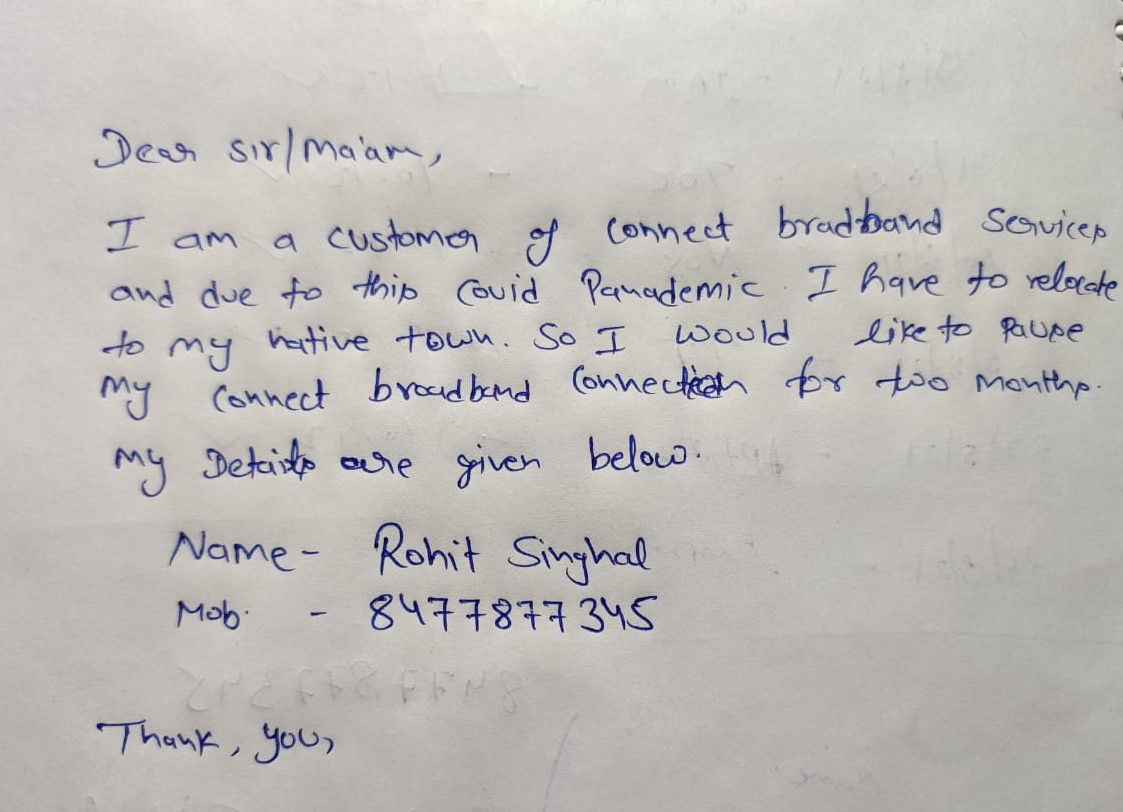 Dear sir/Ma'am,
I am a customer of connect bradband services
and due to this Covid Panademic. I have to relocate
to my native town. So I would like to pause
My Connect broadband Connection for two months.
My Details are given below.
Name - Rohit Singhal
Mob. - 8477877345
Thank, you,